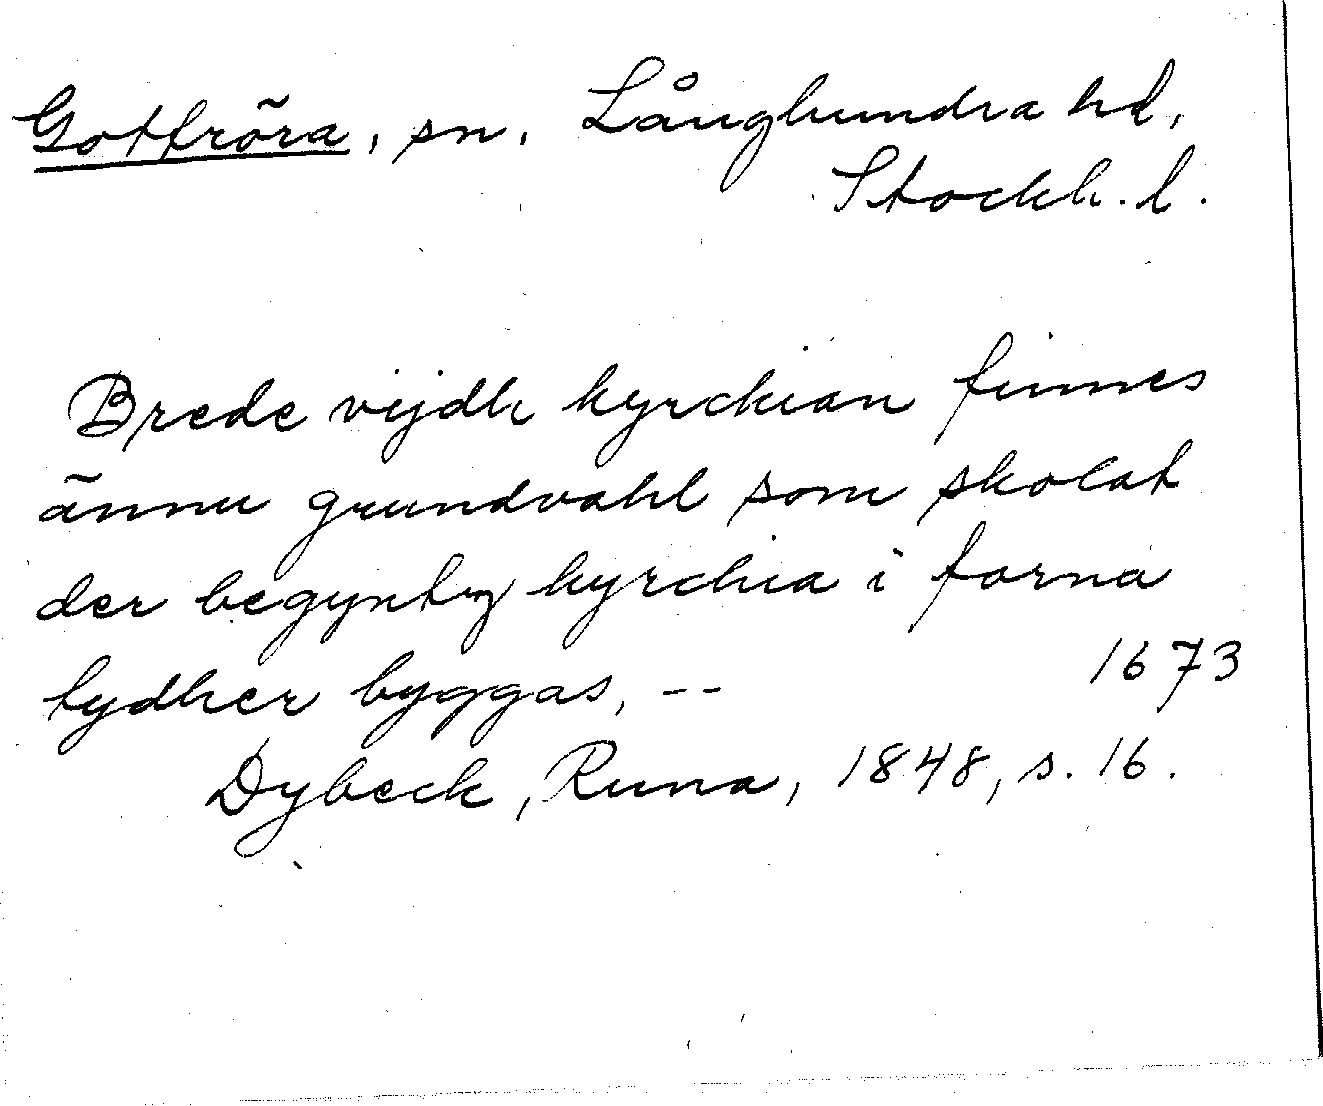 Gottröra, sn, Långhundra hd,
Stockh. l.
Brede vijdh kyrckian finnes
ännu grundvahl som skolat
der begyntz kyrchia i forna
tydher byggas, -- 1673
Dybeck, Runa, 1848, s. 16.